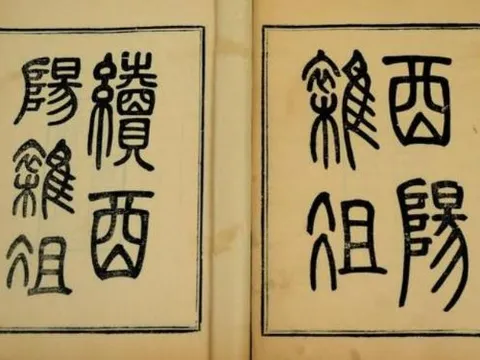 酉陽
雜俎
續酉
陽雜俎